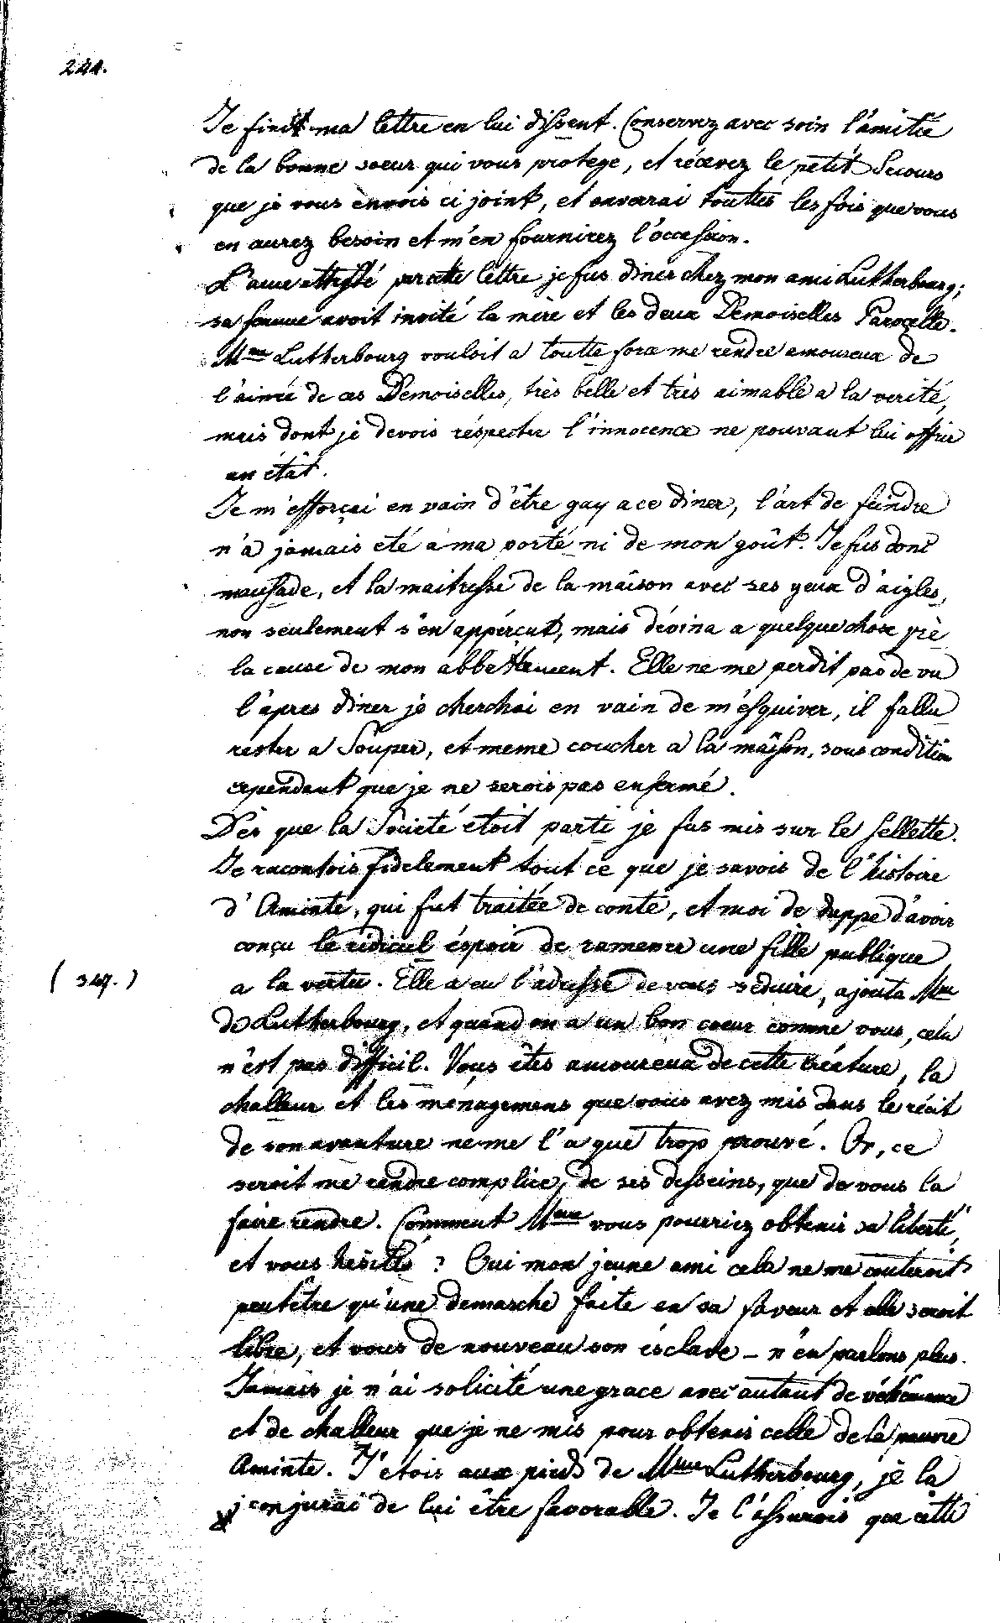 244.
Je finit ma lettre en lui dissent. Conservez avec soin l'amitié
de la bonne soeur qui vous protege, et récevez le petit Secours
que je vous envois ci joint, et enverai touttes les fois que vous
en aurez besoin et m'en fournirez l'occassion.
L'ame attristé par cette lettre je fus diner chez mon ami Lutherbourg;
sa femme avoit invité la mère et les deux Demoiselles Parocelle.
Mme Lutherbourg vouloit a toutte force me rendre amoureux de
l'ainée de ces Demoiselles, très belle et très aimable a la verité,
mais dont je devois réspecter l'innocence ne pouvant lui offrir
un état.
Je m'efforçai en vain d'être gay a ce diner, l'art de feindre
n'a jamais eté a ma porté ni de mon goût. Je fus donc
mausade, et la maitresse de la maison avec ses yeux d'aigles,
non seulement s'en appérçut, mais dévina a quelque chose prè
la cause de mon abbettement. Elle ne me perdit pas de vu
l'apres diner je cherchai en vain de m'ésquiver, il fallu
rester a Souper, et meme coucher a la maison, sous condition
cependant que je ne serois pas enfermé.
Dès que la Societé etoit parti je fus mis sur le sellette.
Je racontois fidelement tout ce que je savois de l'histoire
d'Aminte, qui fut traitée de conte, et moi de duppe d'avoir
conçu le ridicul éspoir de ramener une fille publique
( 347. )
a la vertu. Elle a eu l'adresse de vous séduire, ajouta Mme
de Lutherbourg, et quand on a un bon coeur comme vous, cela
n'est pas difficil. Vous êtes amoureux de cette créature, la
challeur et les menagemens que vous avez mis dans le récit
de son aventure ne me l'a que trop prouvé. Or, ce
seroit me rendre complice, de ses desseins, que de vous la
faire rendre. Comment Mme vous pourriez obtenir sa liberté,
et vous hesitté ? Oui mon jeune ami cela ne me couteroit
peutetre qu'une demarche faite en sa faveur et elle seroit
libre, et vous de nouveau son ésclave – n'en parlons plus.
Jamais je n'ai solicité une grace avec autant de véhémence
et de challeur que je ne mis pour obtenir celle de la pauvre
Aminte. J'etois aux pieds de Mme Lutherbourg, je la
conjurai de lui être favorable. Je l'assurois que cette